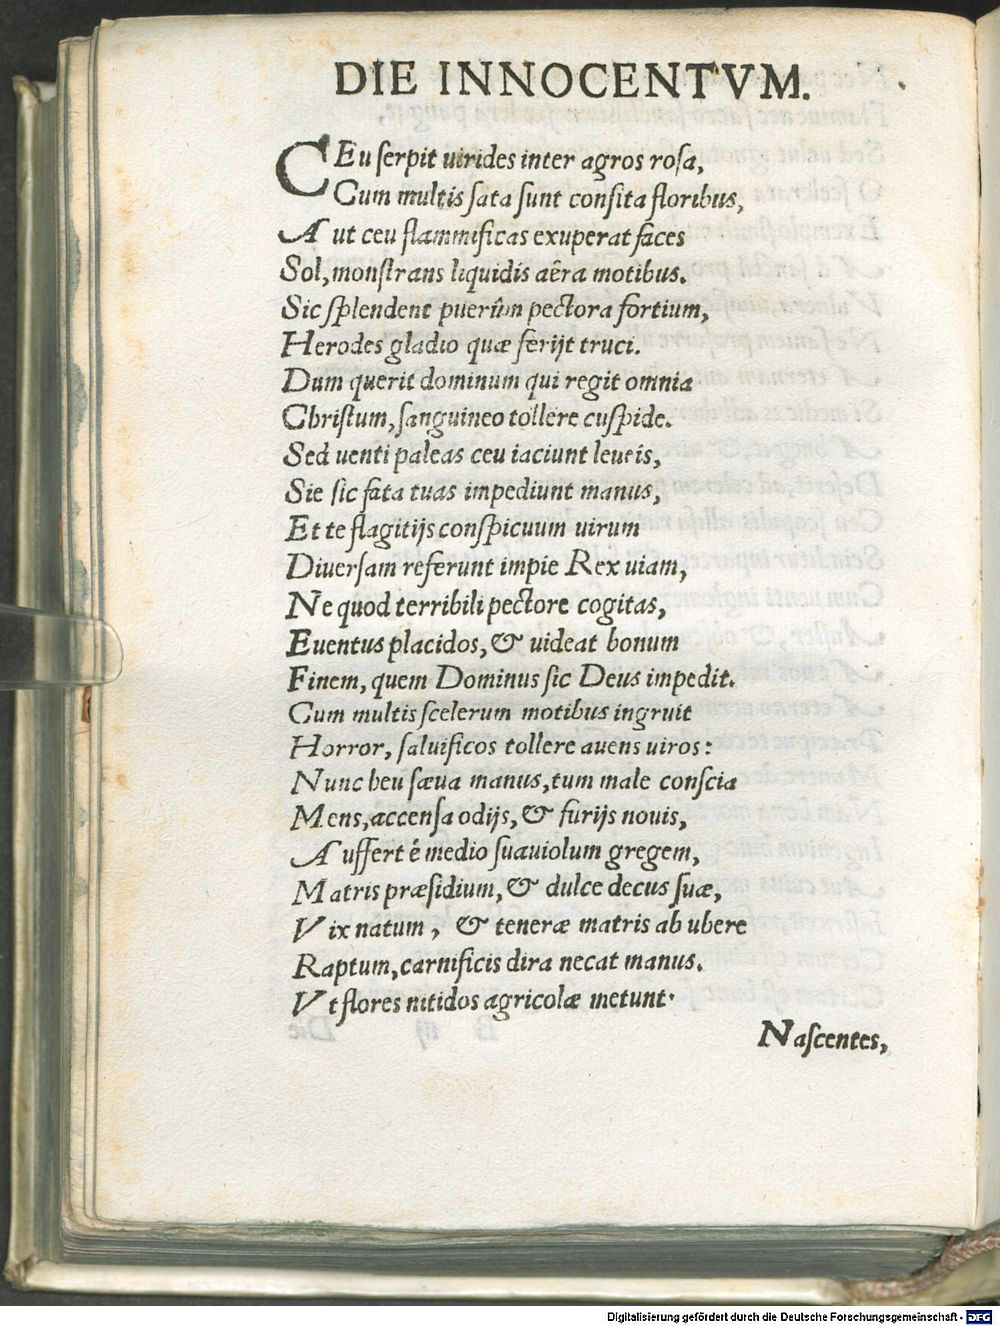 DIE INNOCENTVM.
CEu ſerpit uirides inter agros roſa,
Cum multis ſata ſunt conſita floribus,
Aut ceu flammificas exuperat faces
Sol, monſtrans liquidis aêra motibus.
Sic ſplendent puerûm pectora fortium,
Herodes gladio quæ ferijt truci.
Dum querit dominum qui regit omnia
Chriſtum, ſanguineo tollere cuſpide.
Sed uenti paleas ceu iaciunt leueis,
Sie ſic fata tuas impediunt manus,
Et te flagitijs conſpicuum uirum
Diuerſam referunt impie Rex uiam,
Ne quod terribili pectore cogitas,
Euentus placidos, & uideat bonum
Finem, quem Dominus ſic Deus impedit.
Cum multis ſcelerum motibus ingruit
Horror, ſaluificos tollere auens uiros:
Nunc heu ſæua manus, tum male conſcia
Mens, accenſa odijs, & furijs nouis,
Auffert ê medio ſuauiolum gregem,
Matris præſidium, & dulce decus ſuæ,
Vix natum, & teneræ matris ab ubere
Raptum, carnificis dira necat manus.
Vt flores nitidos agricolæ metunt.
Naſcentes,
Digitalisierung gefördert durch die Deutsche Forschungsgemeinschaft - DFG